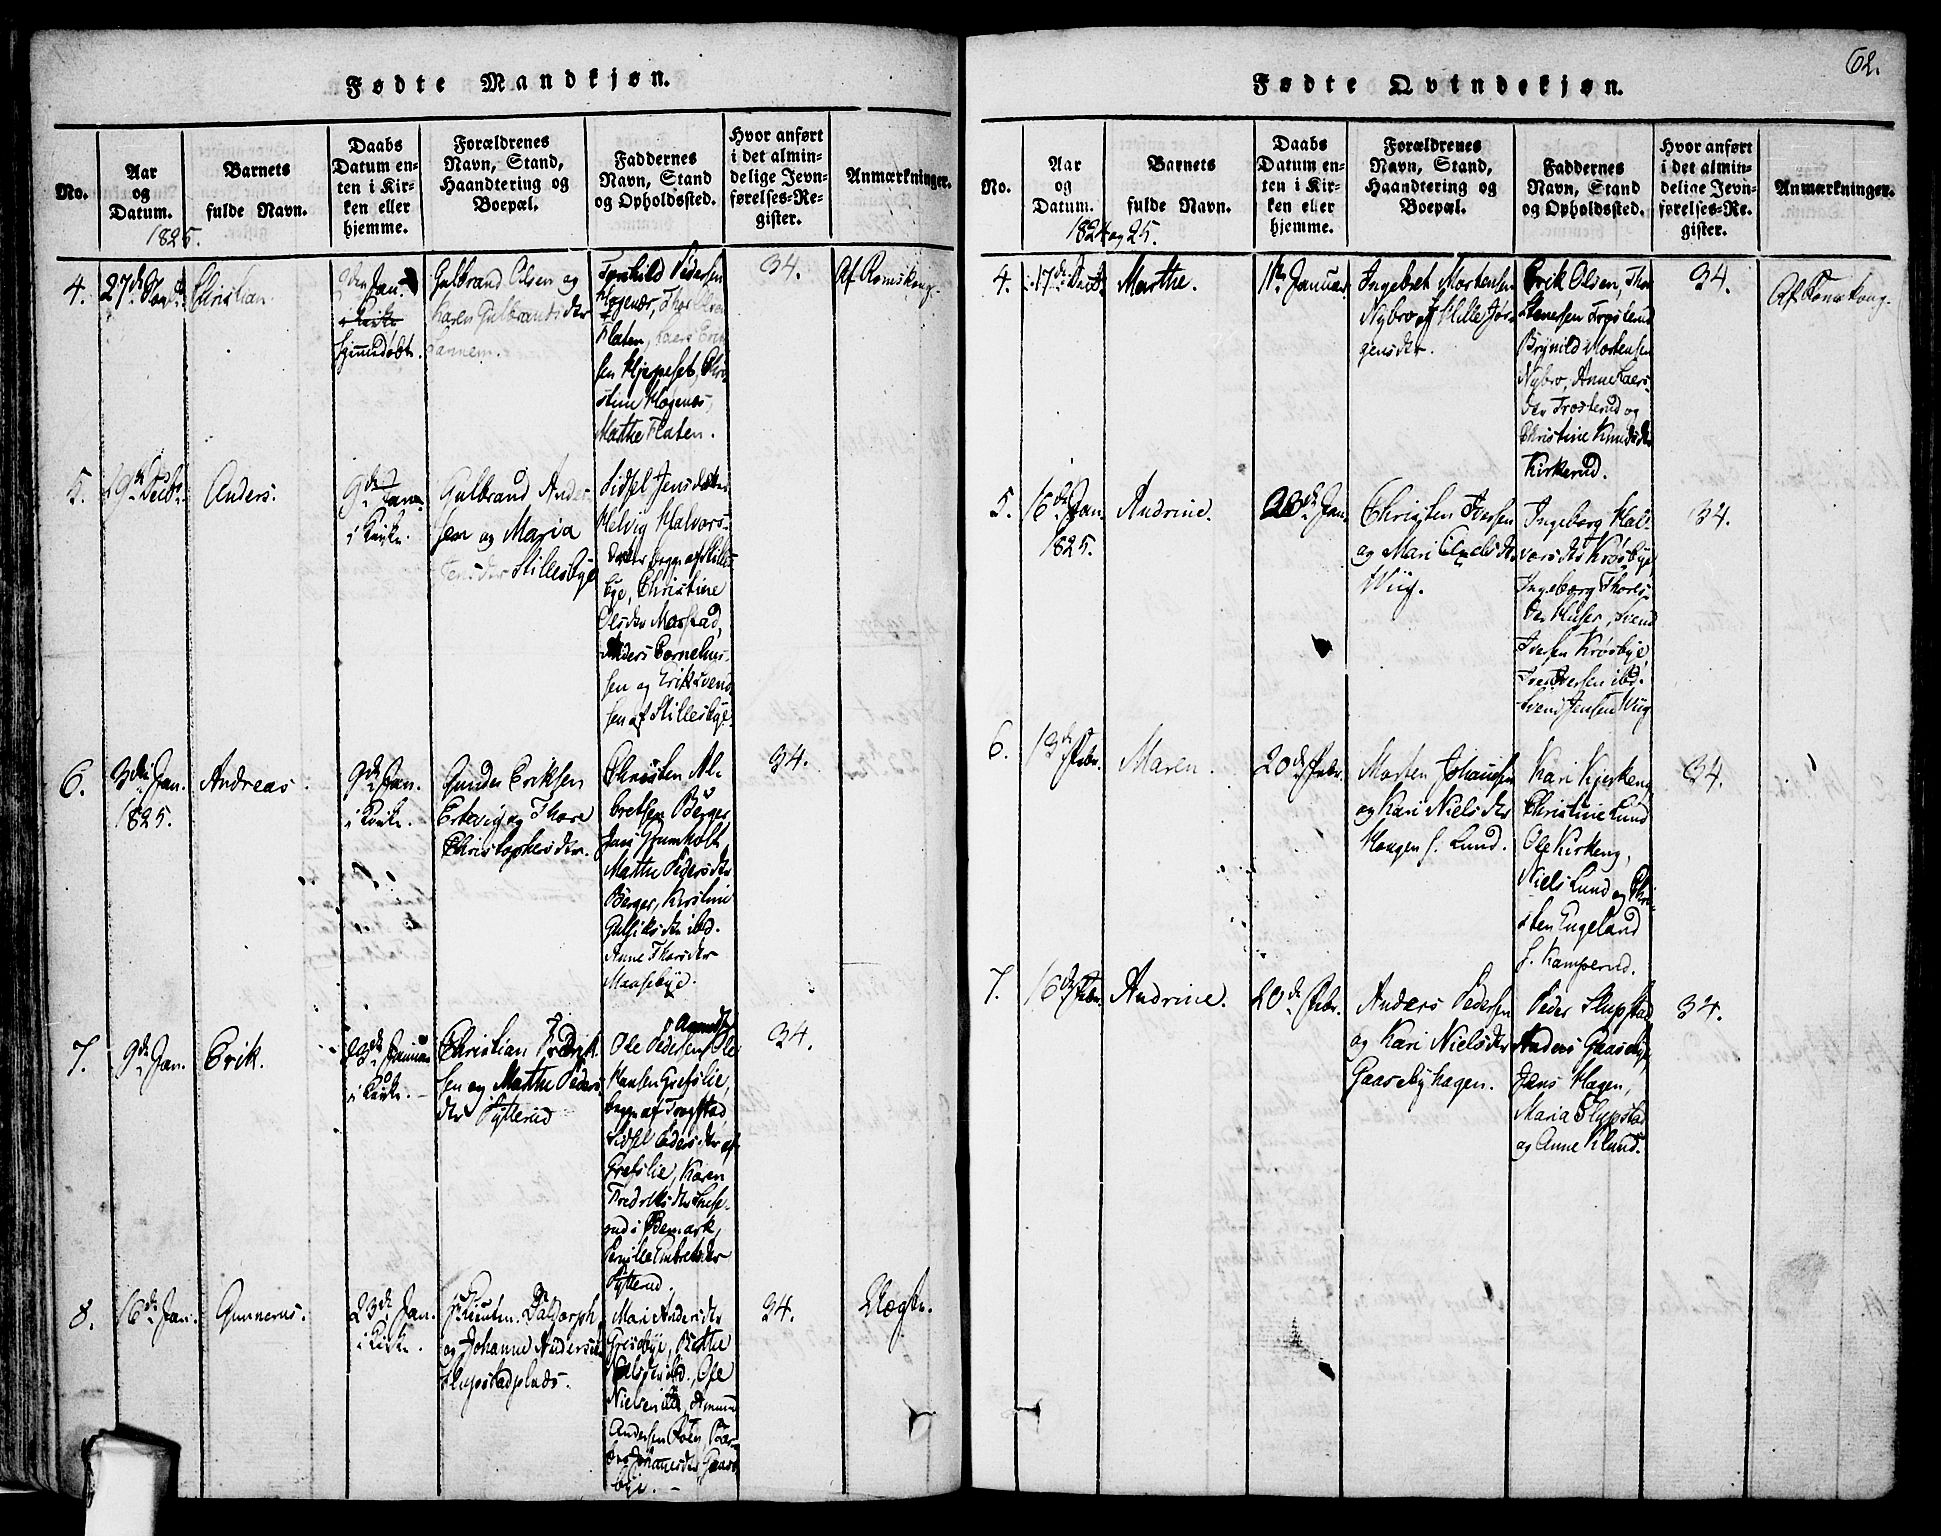 Fødte Mandkjøn.
No.
Aar
og
Datum.
1825.
Barnets
fulde Navn.
Daabs
Datum en-
ten i Kir-
ken eller
hjemme.
Forældrenes
Navn, Stand,
Haandtering og
Boepæl.
Faddernes
Navn, Stand
og Opholdssted.
Hvor anført
i det almin-
delige Jevn-
førelses-Re-
gister.
Anmærkninger.
4.
27de
Christian.
Jan.
hjemmedøbt.
Gulbrand Olsen og
Karen Gulbrandsdtr
Tannem.
Torshild Pedersen
Hogenæs, Thor Olsen
Flaten, Lars Erik
sen Hjerpeset, Chri
stine Hogenæs,
Marthe Flaten.
34.
Af Romskoug.
5.
19de Decbr.
Anders.
9de Jan.
i Kirke.
Gulbrand Ander
sen og Maria
Jensdtr Stillesbye
Sidsel Jensdatter
Helvig Halvors-
datter begge af Stilles
bye, Christine
Olsdtr Morstad,
Anders Cornelius-
sen og Erik Svend
sen af Stillesbye.
6.
3die Jan.
1825.
Andreas.
9de Jan.
i Kirke.
Gunder Eriksen
Ertevig og Thore
Christophersdtr.
Christen Al-
bretsen Berger
Jens Humholt
Marthe Pedersdtr
Berger, Kirstine
ibd.
Anne Thorsdtr
Maasebye.
34.
7.
9de Jan.
Erik.
23de Januar
i Kirke.
Christian Fredrik
sen og Marthe Peders
dtr Sytterud
Ole Pedersen
Ole
Hansen Grefslie,
begge af Trøgstad
Sidsel Pedersdtr af
Grefslie, Karen
Fredriksdtr
rud i Hemark,
Pernille Embretsdtr
Sytterud.
34.
8.
16de Jan.
Gunnerus.
23de Jan.
i Kirke.
Lieuten. Daldorph
og Johanne Andersd
Slupstadplads.
Mari Andersdtr
Gresebye, Berthe
ibd., Ole
Nielsen ibd, Amund
Andersen
Gaase
bye.
34.
Uægte.
62.
Fødte Qvindekjøn.
No.
Aar
og
Datum.
1824 og 25.
Barnets
fulde Navn.
Daabs
Datum en-
ten i Kir-
ken eller
hjemme.
Forældrenes
Navn, Stand,
Haandtering og
Boepæl.
Faddernes
Navn, Stand
og Opholdssted.
Hvor anført
i det almin-
delige Jevn-
førelses-Re-
gister.
Anmærkninger.
4.
17de Decbr
Marthe.
1ste Januar
Ingebret Mortensen
Nybro og Mille Jør-
gensdtr.
Erik Olsen, Thor
Stenersen Trosterud
Brynild Mortensen
Nybro, Anne Lars-
dtr Trosterud og
Christine Knudsdtr
Kirkerud.
34.
Af Romskoug.
5.
16de Jan.
1825.
Andrine.
23de Jan.
Christen Iversen
og Mari Axelsdtr
Wiig.
Ingeborg Hal-
vorsdtr Krosbye
Ingeborg Thores-
dtr Huser, Svend
Iversen Krosbye,
Iversen ibd.
Svend Jensen Wiig
34.
6.
13de Febr.
Maren.
20de Febr.
Morten Johansen
og Kari Nielsdtr
Haugen f. Lund.
Kari Kjerkeng
Christine Lund
Ole Kirkeng,
Niels Lund og Chri-
sten Engeland
f. Kamperud.
34.
7.
16de Febr.
Andrine.
20de Febr.
Anders Pedersen
og Kari Nielsdtr
Gaasebyhagen.
Peder Slupstad
Anders Gaasebye,
Jens Hagen,
Maria Slupstad
og Anne Klund.
34.